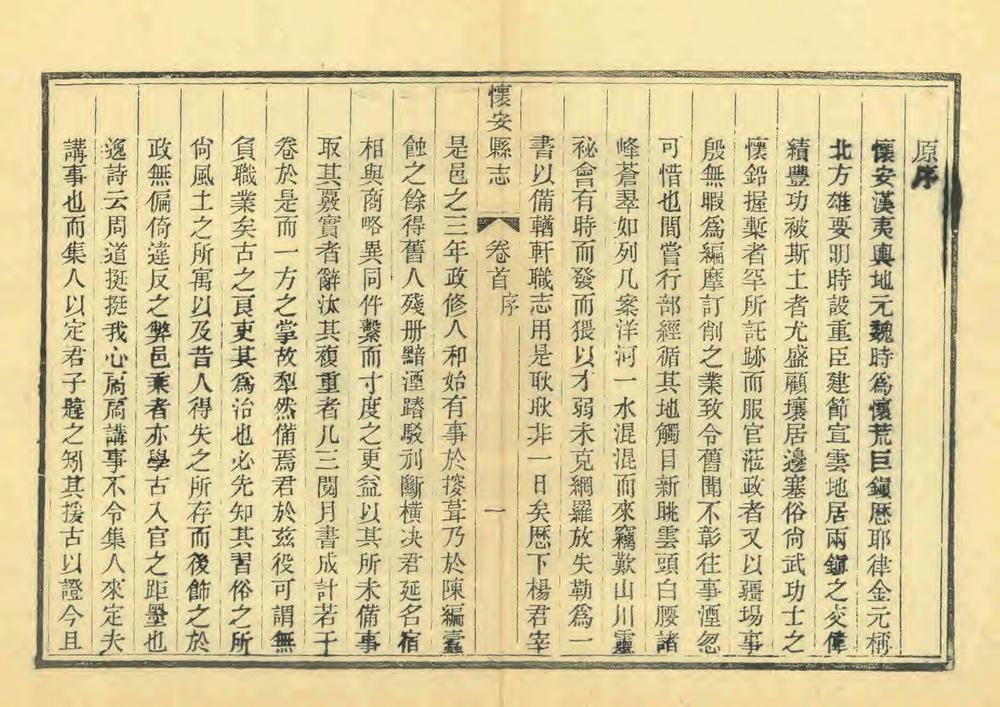 原序
懷安漢夷輿地元魏時爲懷荒巨鎭歷耶律金元稱
北方雄要明時設重臣建節宣雲地居兩鎭之交偉
績豐功被斯土者尤盛顧壤居邊塞俗尙武功士之
懷鉛握槧者罕所託跡而服官蒞政者又以疆場事
殷無暇爲編摩訂削之業致令舊聞不彰往事湮忽
可惜也間嘗行部經循其地觸目新眺雲頭白腰諸
峰蒼翠如列几案洋河一水混混而來竊歎山川靈
秘會有時而發而猥以才弱未克網羅放失勒爲一
書以備輶軒職志用是耿耿非一日矣歷下楊君宰
懷安縣志 卷首 序 一
是邑之三年政修人和始有事於搜葺乃於陳編蠹
蝕之餘得舊人殘册黯湮踳駁刓斷橫决君延名宿
相與商略異同件繫而寸度之更益以其所未備事
取其覈實者辭汰其複重者凡三閱月書成計若干
卷於是而一方之掌故犁然備焉君於兹役可謂無
負職業矣古之良吏其爲治也必先知其習俗之所
尙風土之所寓以及昔人得失之所存而後飾之於
政無偏倚違反之弊邑乘者亦學古入官之距墨也
逸詩云周道挺挺我心扃扃講事不令集人來定夫
講事也而集人以定君子韙之矧其援古以證今且